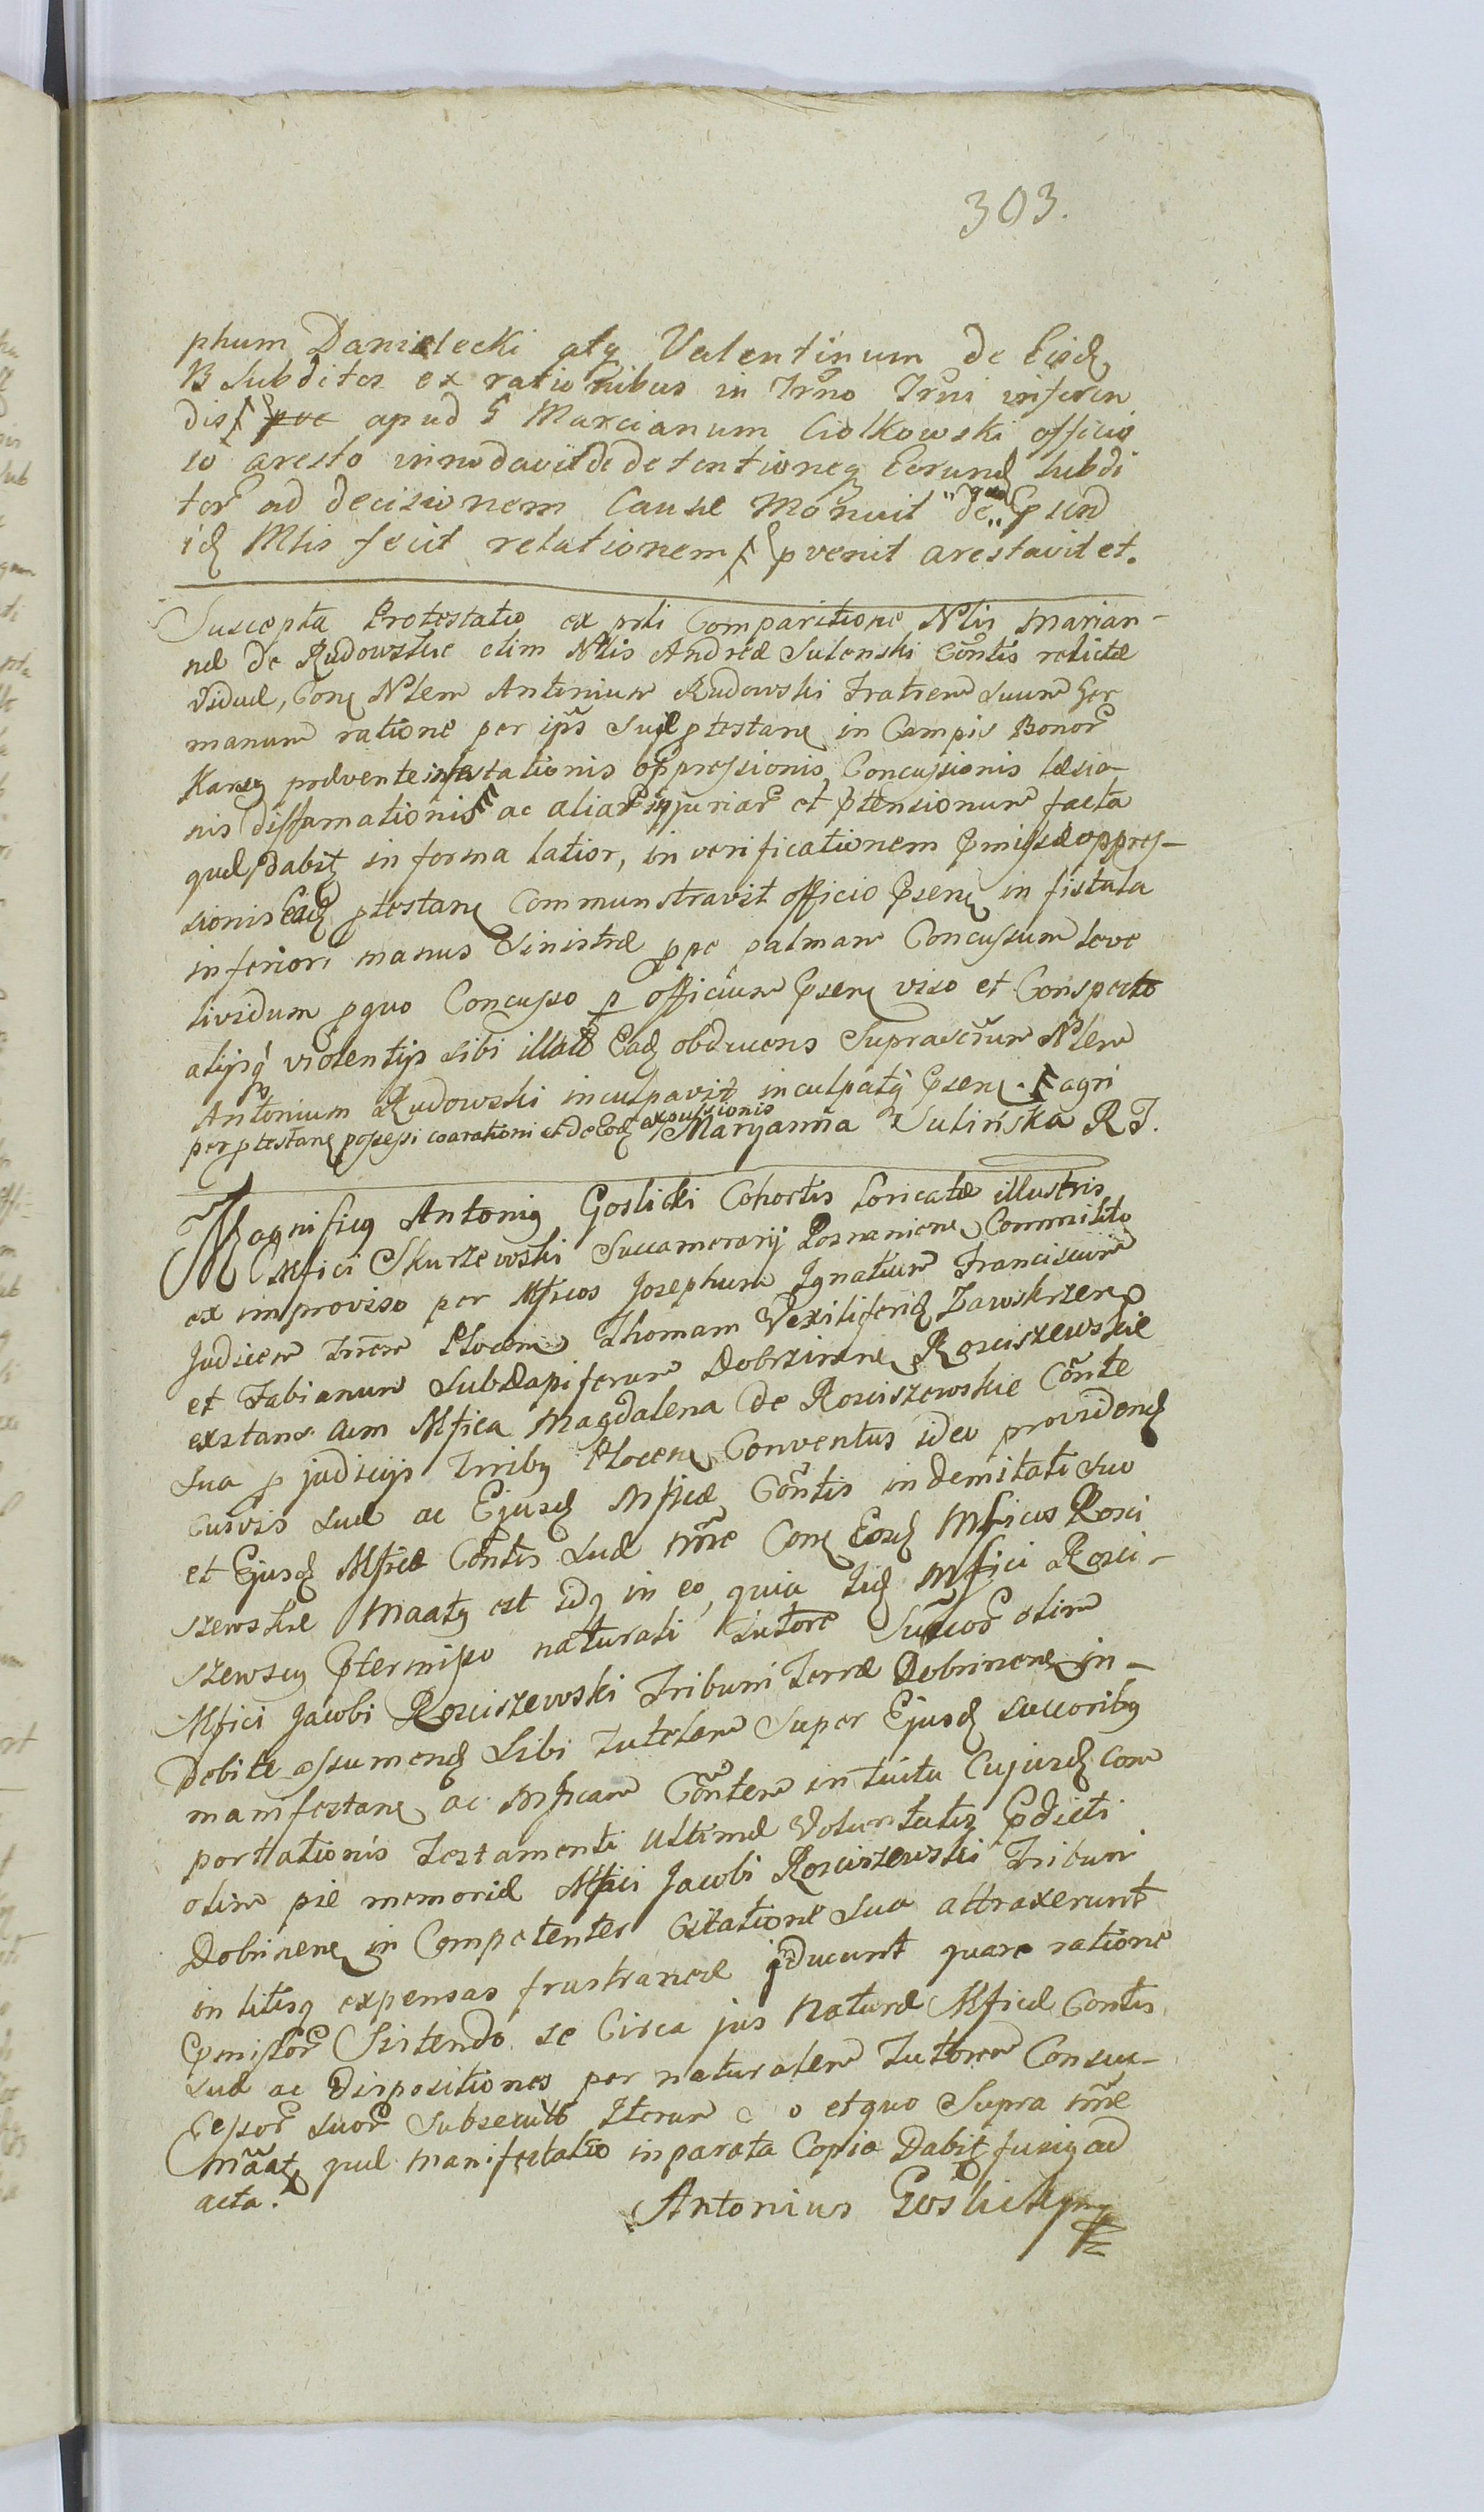 303.
phum Danielecki atq Valentinum de Eisd
B Subditos ex rationibus in Trno Trni inferen
dis apud G Marcianum Ciolkowski officio
so aresto innodavit de detentioneq Eorund Subdi
tor ad decisionem Causæ Monuit de quo Psend
id Mlis fecit relationem pvenit arestavit et.
Suscepta Protestatio ex psti Comparitione Nlis Marian-
næ de Rudowskie olim Nlis Andreæ Sulenski Contis relictæ
Viduæ, Con Nlem Antonium Rudowski Fratrem Suum Ger
manum ratione per ips Suæ ptestan in Campis Bonor
Karsy prævente infestationis oppressionis Concussionis læsio-
nis diffamationis ac aliar injuriar et Ptensionum facta
quæ dabit in forma latior, in verificationem Pmissæ oppres-
sionis Ead ptestans Communstravit officio Psens in fistula
inferiori manus Sinistræ ppe palmam Concussum leve
lividum pquo Concusso p officium Psens viso et Conspecto
alijsq violentijs sibi illatis Ead obducens Suprascrum Nlem
Antonium Rudowski inculpavit inculpatq Psens. agri
per ptestans possessi coarationi et de Eod expulsionis Maryanna Sulińska R J.
Magnificq Antoniq Goslicki Cohortis Loricatæ illustris
Mfici Skurzewski Succamerarij Posnaniens Commilito
ex improviso per Mficos Josephum Ignatium Franciscum
Judicem Trrem Plocens Thomam Vexiliferid Zawskrzens
et Fabianum Subdapiferum Dobrzinens Rosciszewskie
extans cum Mfica Magdalena de Rosciszewskie Conte
Sua p judicijs Trribq Plocens Conventus ideo providend
Curvis Suæ ac Ejusd Mficæ Contis indemitati Suo
et Ejusd Mficæ Contis Suæ Nore Con Eosd Mficos Rosci
szewskie Maatq est Idq in eo, quia Iid Mfici Rosci-
szewscy Ptermisso naturali Tutore Succor olim
Mfici Jacobi Rosciszewski Tribuni Terræ Dobrinens in-
debite assumend Sibi Tutelam Super Ejusd Succoribq
manifestans ac Mficam Contem intuitu Cujusd com
portationis Testamenti Ultimæ Voluntatis Pdicti
olim piæ memoriæ Mfici Jacobi Rosciszewski Tribuni
Dobrinens in Competenter Citatione Sua attraxerunt
in litisq expensas frustraneæ jnducunt quare ratione
Pmissor Sistendo se Circa jus Naturæ Mficæ Contis
Suæ ac Dispositiones per naturalem Tutorem Consuc-
cessor suor Subsecutas Iterum o et quo Supra Nore
Maatq quæ manifestatio in parata Copia Dabit fusiq ad
acta.
Antonius Goslicki mp